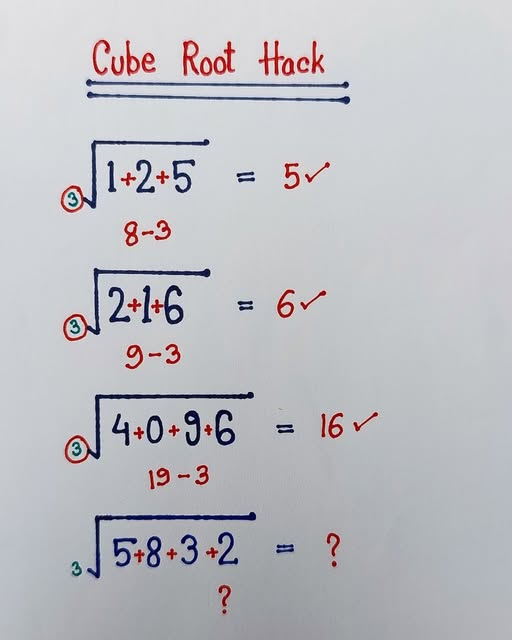 Cube Root Hack
∛1+2+5 = 5✓
8-3
∛2+1+6 = 6✓
9-3
∛4+0+9+6 = 16✓
19-3
∛5+8+3+2 = ?
?